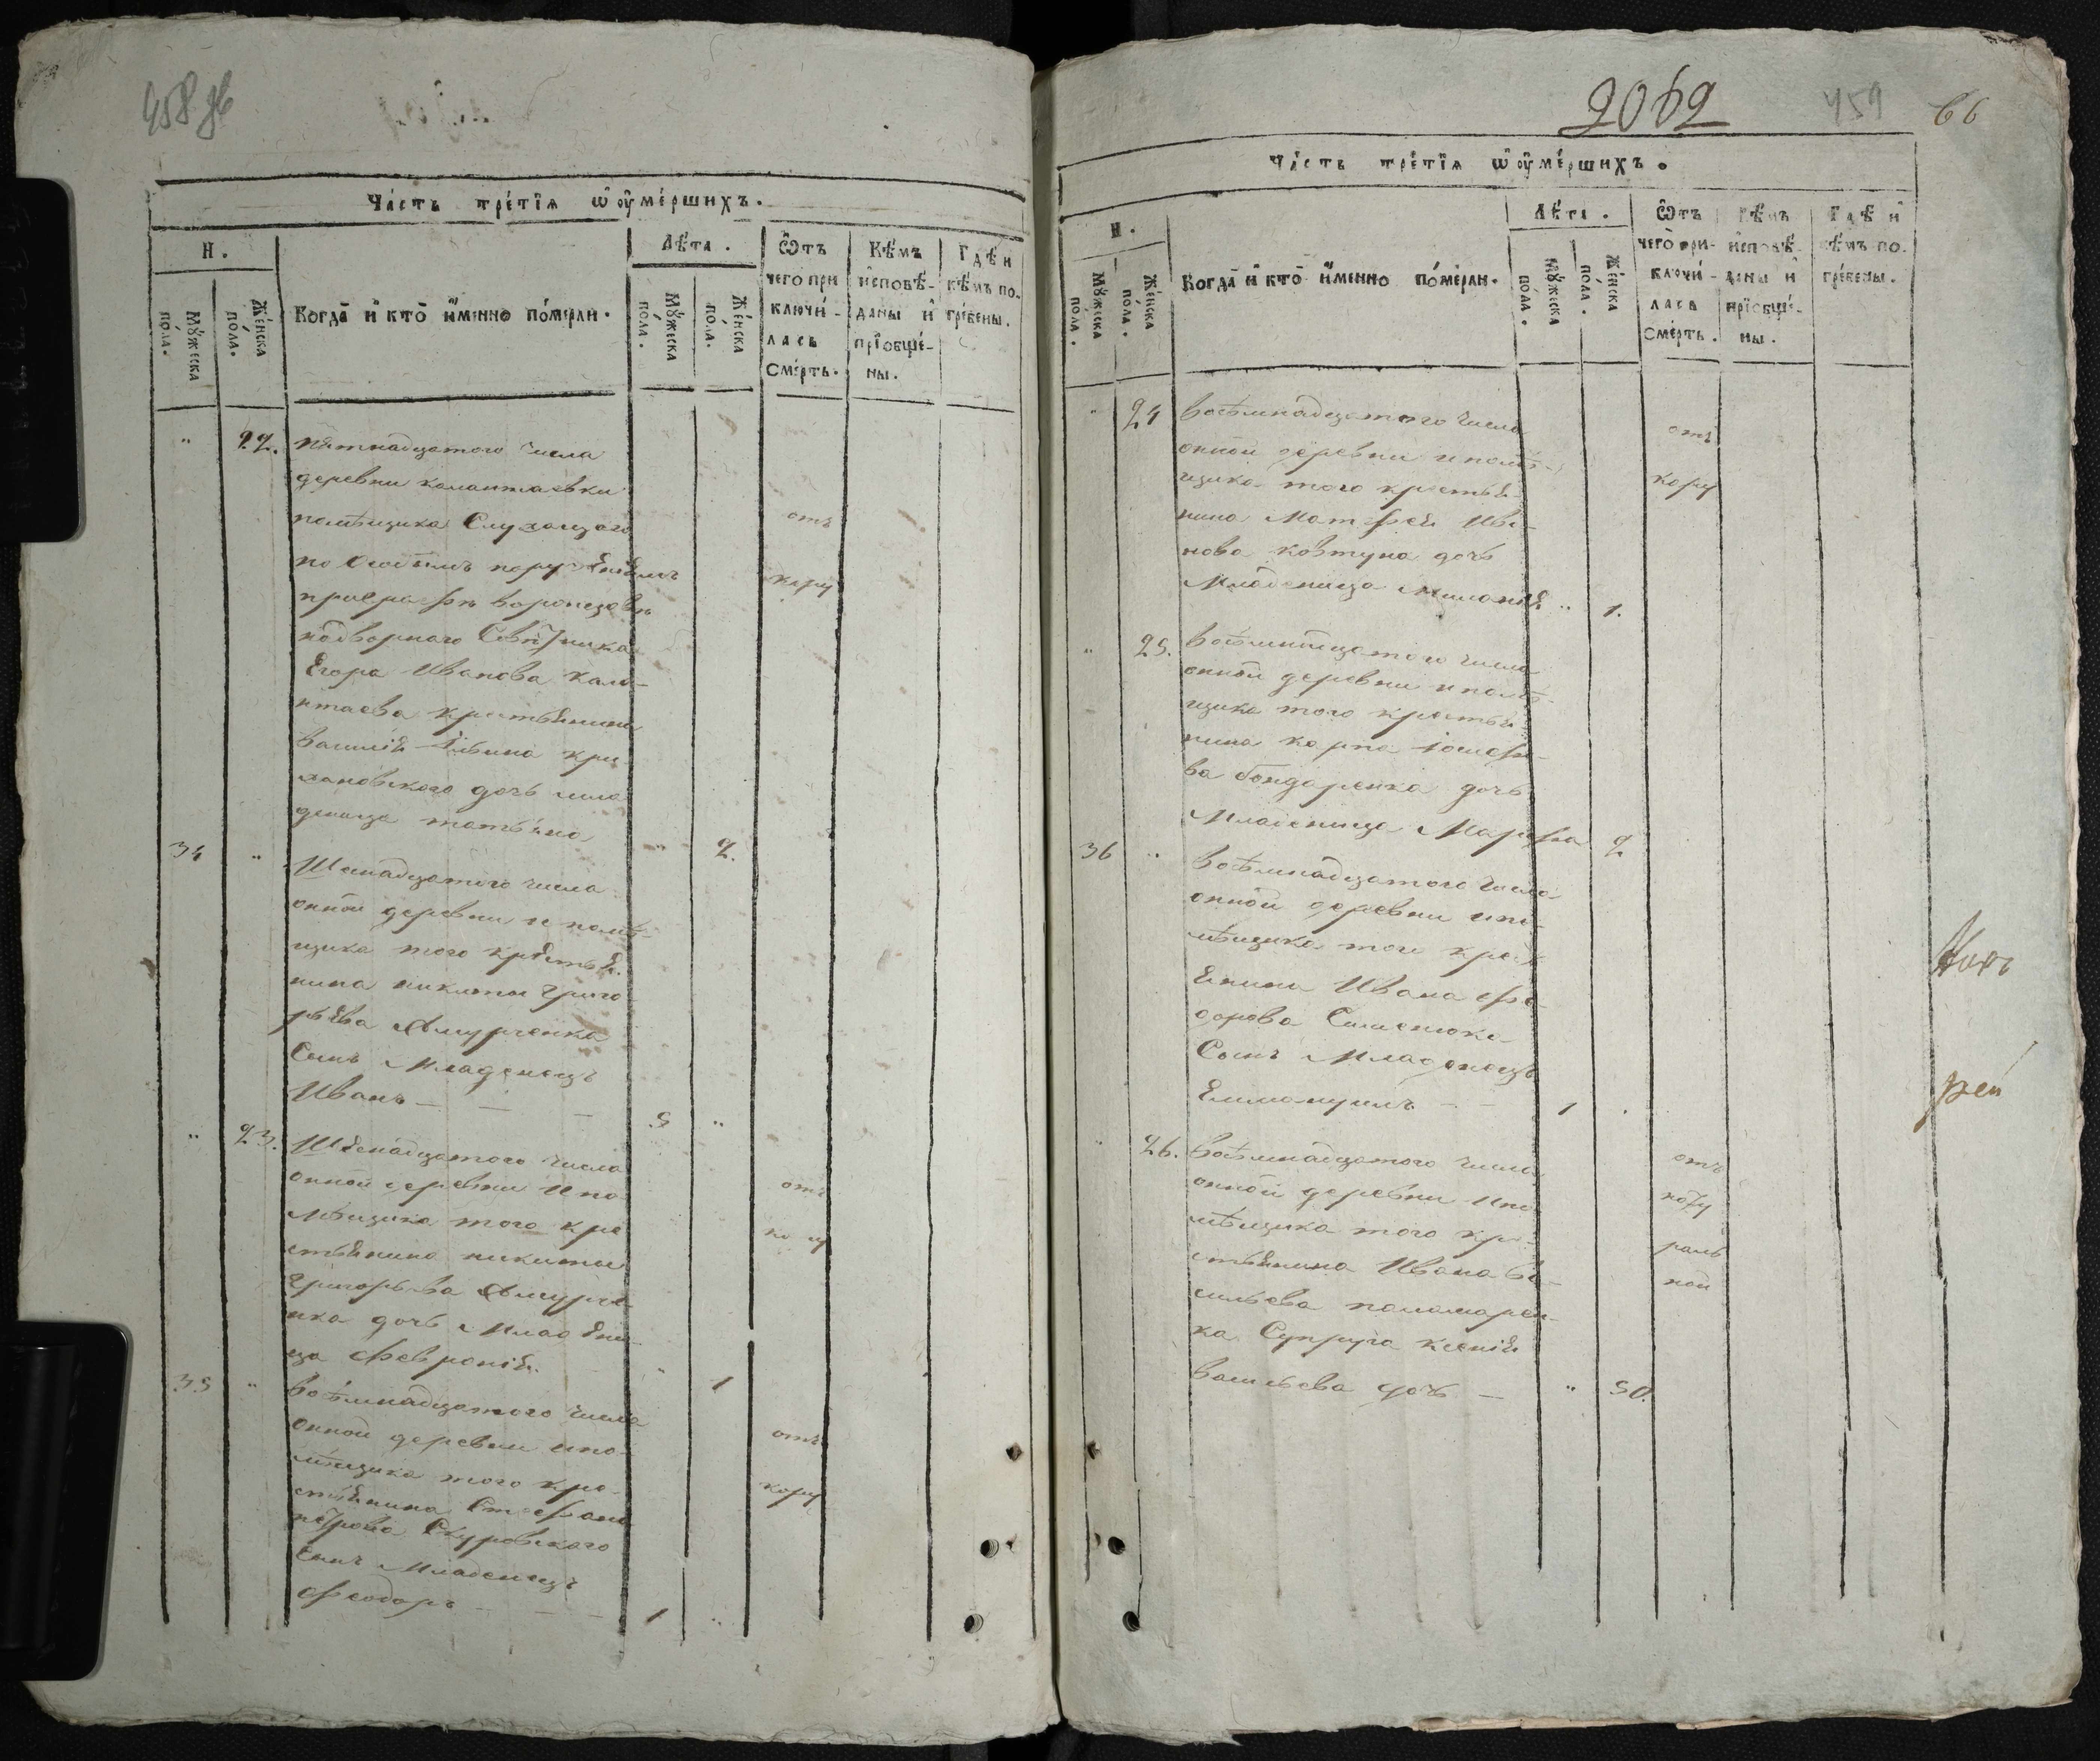 458 об
Часть третїѧ ѡ оумершихъ.
Н.
Мꙋжеска пола.
Женска пола.
Когда и кто именно померли.
Лѣта.
Мꙋжеска пола.
Женска пола.
Ѿтъ чего приключилась смерть.
Кѣмъ исповѣданы и прїобщены.
Гдѣ и кѣмъ погребены.
" 22. пятнадцатого числа
деревни калантаевки
помѣщика
по
надворного Совѣтника отъ
Егора Иванова кала- кору
нтаева крестьянина
василія Ильина кри
хановского дочь мла
деница татьяна " 2.
34 " Шеснадцатого числа
онной деревни и помѣ-
щика того крестья
нина никиты Григо
рьева
Сынъ Младенецъ
Иванъ — — — 5 "
" 23. Шеснадцатого числа
онной деревни и по отъ
мѣщика того кре
стьянина никиты
Григорьева
нка дочь Младени-
ца Февронія " 1
35 " восѣмнадцатого числа
онной деревни и по- отъ
мѣщика того кре-
стьянина Стефана кору
петрова Скуровского
Сынъ Младенецъ
Феодоръ — — — 1 "
2062
459
66
Часть третїѧ ѡ оумершихъ.
Н.
Мꙋжеска пола.
Женска пола.
Когда и кто именно померли.
Лѣта.
Мꙋжеска пола.
Женска пола.
Ѿтъ чего приключилась смерть.
Кѣмъ исповѣданы и прїобщены.
Гдѣ и кѣмъ погребены.
" 24 восѣмнадцатого числа
онной деревни и помѣ- отъ
щика того крестья кору
нина Матфея Ива-
нова ковтуна дочь
Младеница Миланія " 1.
" 25. восѣмнадцатого числа
онной деревни и помѣ-
щика того крестья
нина карпа Іосифо-
ва бондаренка дочь
Младеница Марфа 2
36 " восѣмнадцатого числа
онной деревни и по-
мѣщика того крест
янина Ивана Фе-
дорова Симонюка
Сынъ Младенецъ
Еммануилъ — — 1 .
" 26. восѣмнадцатого числа отъ
онной деревни и по нату
мѣщика того кре- раль
стьянина Ивана Ва- ной
сильева паламарен-
ка Супруга ксенія
васильева дочь — " 50.
рей